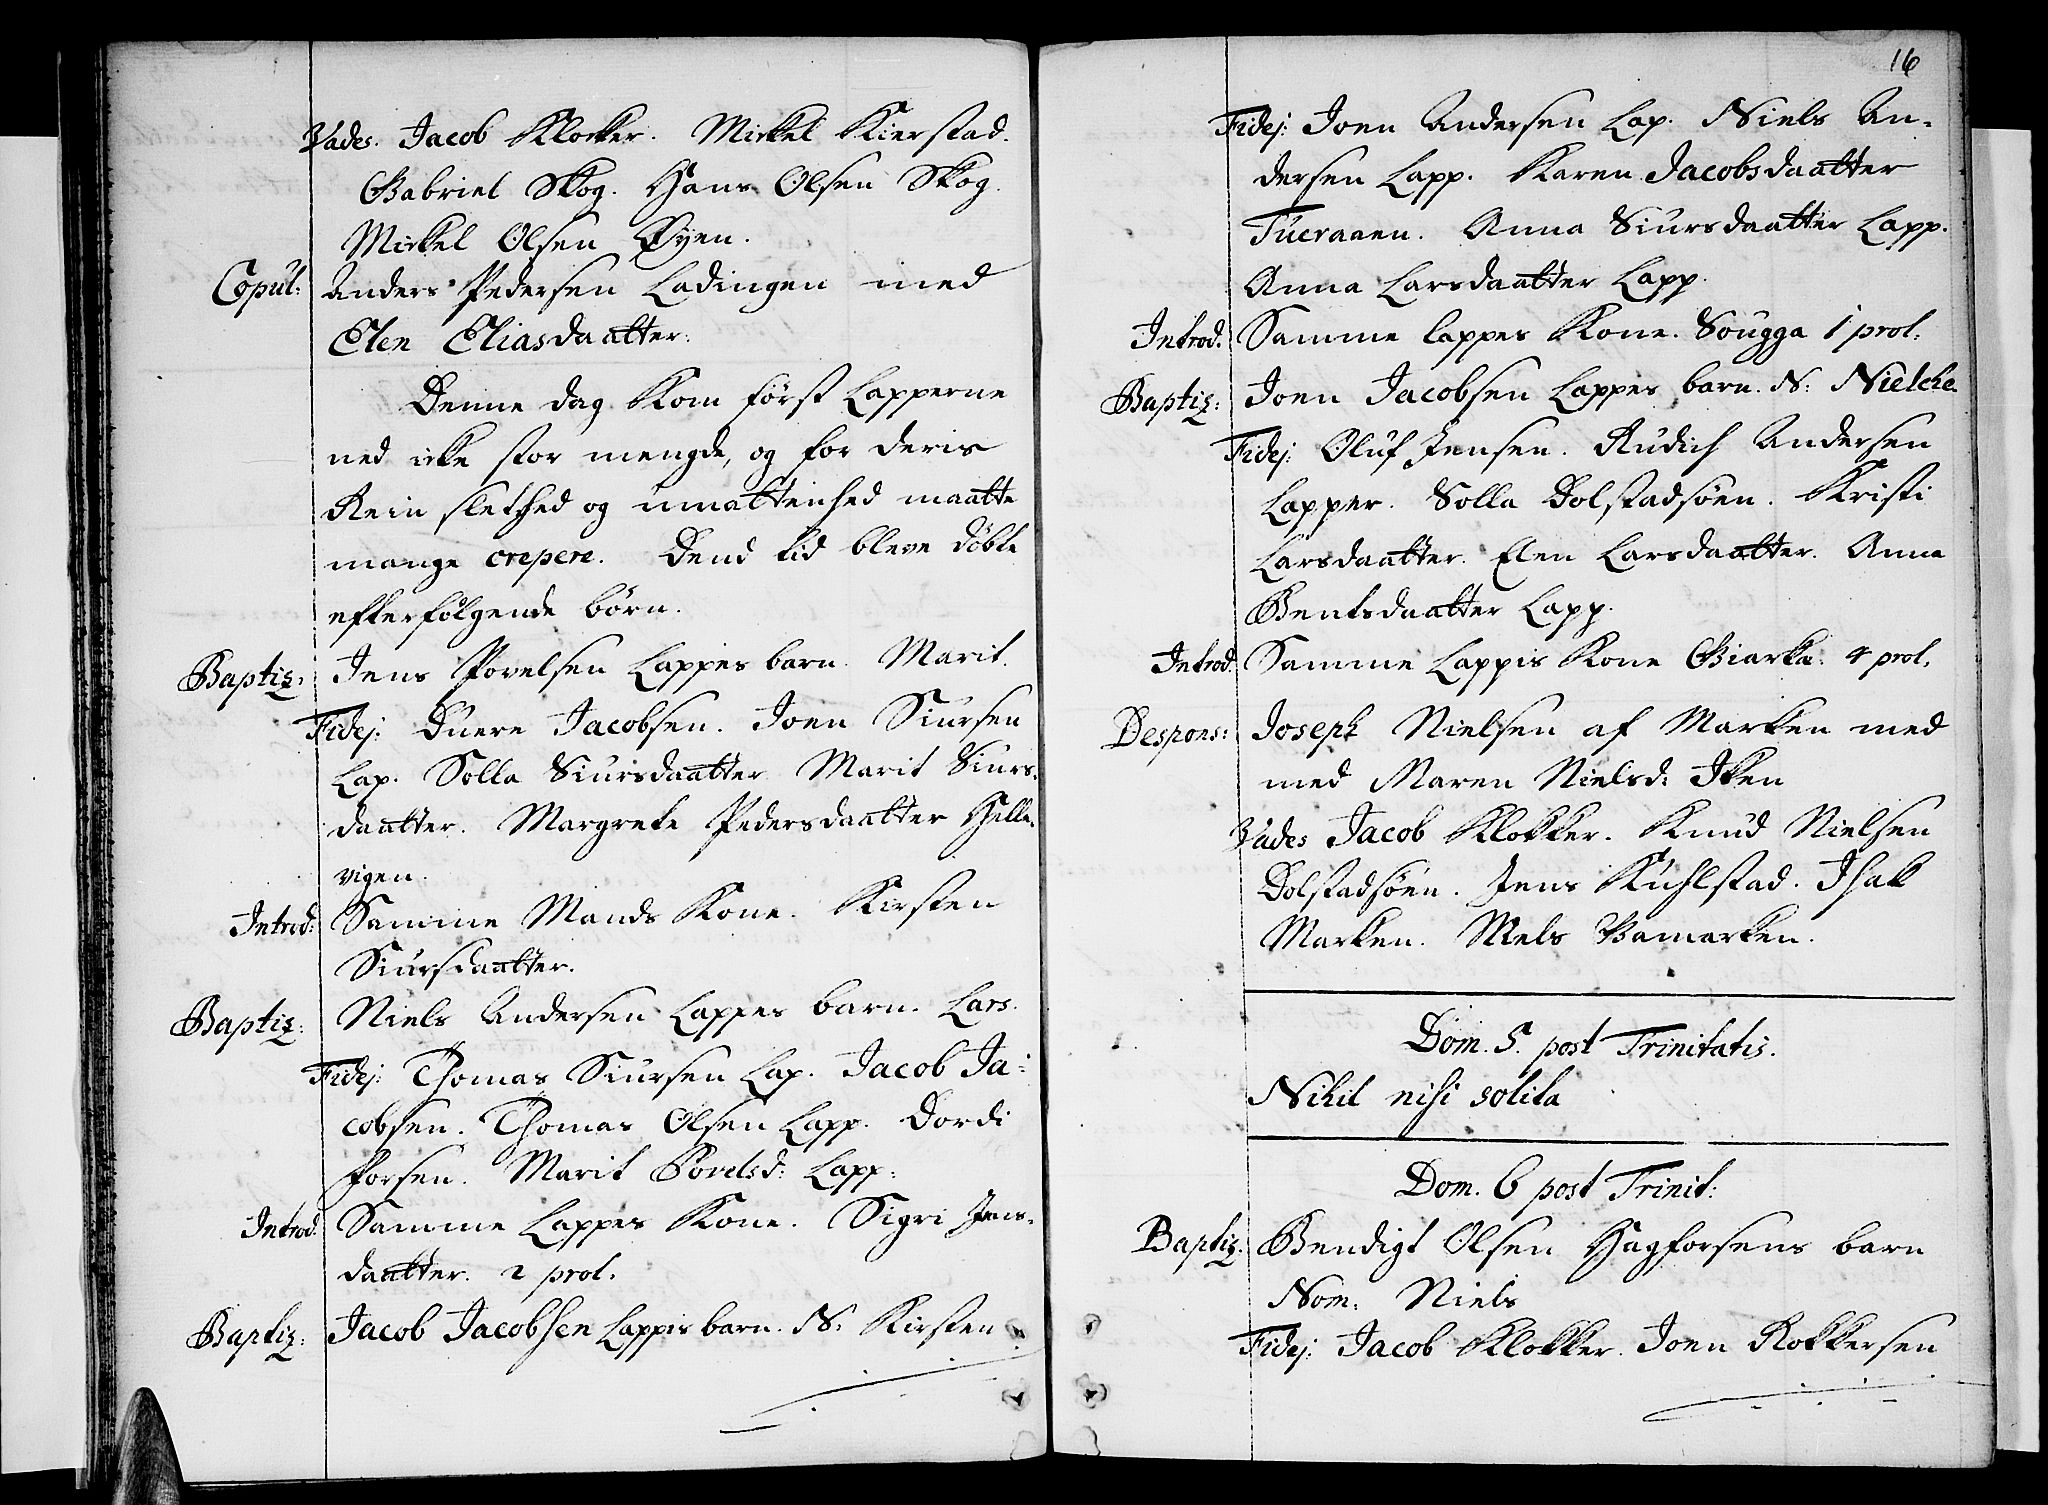 Vades. Jacob Klocker. Mickel Kierstad.
Gabriel Skog. Hans Olsen Skog.
Mickel Olsen Øyen.
Copul: Anders Pedersen Ladingen med
Elen Eliasdaatter.
Denne dag Kom først Lapperne
ned icke stor mengde, og for deris
Rein slethed og umattenhed maatte
mange crepere. Dend tid bleve døbte
efterfølgende børn.
Baptiz: Jens Povelsen Lappes barn. Marit.
Fidej: Duere Jacobsen. Joen Siursen
Lap. Solla Siursdaatter Marit Siurs-
daatter. Margrete Pedersdaatter Helle-
vigen.
Introd: Samme Mands Kone. Kirsten
Siursdaatter.
Baptiz: Niels Andersen Lappes barn. Lars.
Fidej: Thomas Siursen Lap. Jacob Ja-
cobsen. Thomas Olsen Lapp. Dordi
Forsen. Marit Povelsd: Lapp:
Introd: Samme Lappes Kone. Sigri Jens-
daatter. 2 prol.
Baptiz: Jacob Jacobsen Lappis barn. N: Kirsten
16
Fidej: Joen Andersen Lap. Niels An-
dersen Lapp. Karen Jacobsdaatter
Tueraaen. Anna Siursdaatter Lapp.
Anna Larsdaatter Lapp.
Introd. Samme Lappes Kone. Sougga 1 prol.
Baptiz: Joen Jacobsen Lappes barn. N: Nielche.
Fidej: Oluf Jensen. Rudich Andersen
Lapper. Solla Dolstadsøen. Kristi
Larsdaatter. Elen Larsdaatter. Anne
Bentsdaatter Lapp.
Introd: Samme Lappis Kone Biarka. 4 prol.
Despons: Joseph Nielsen af Marken med
med Maren Nielsd: Iken
Vades Jacob Klokker. Knud Nielsen
Dolstadsøen. Jens Kuhlstad. Isak
Marken. Niels Bamarken.
Dom. 5. post Trinitatis.
Nihil nisi solita
Dom. 6 post Trinit:
Baptiz: Bendigt Olsen Hagforsens barn
Nom. Niels
Fidej: Jacob Klokker. Joen Rokkersen